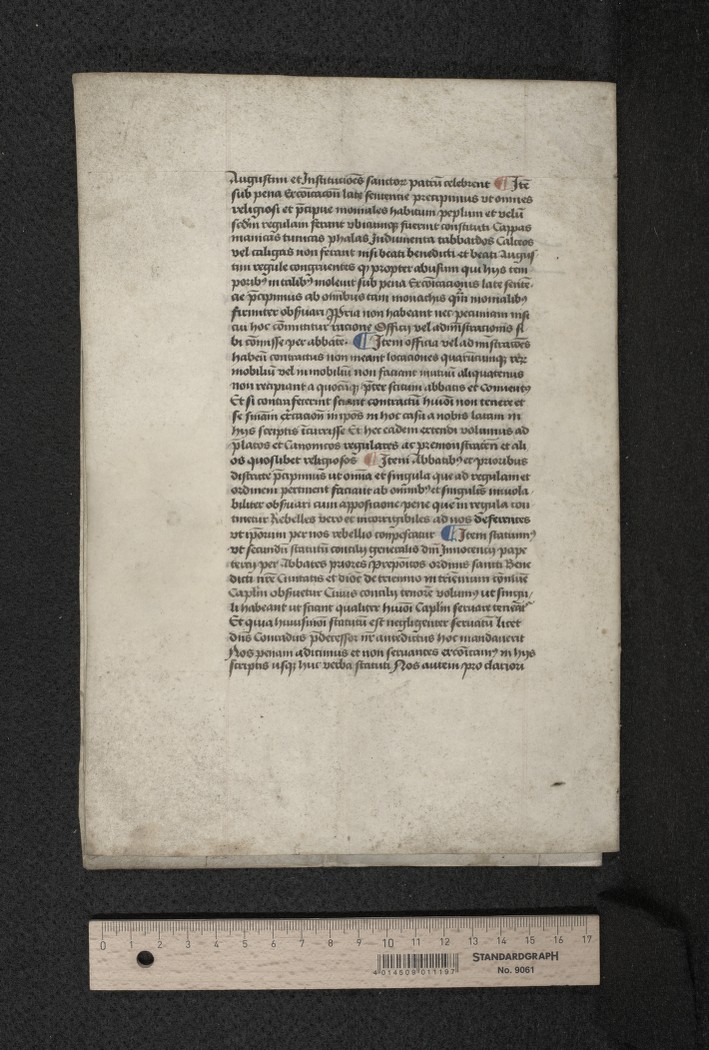 Augustini et Institucōes sanctoꝝ patrū celebrent ¶ Itē
sub pena Excōicacōīs late sentencie precipimus vt omnes
religiosi et p̄cipue moniales habitum peplum et velū
scdm̄ regulam ferant vbicumqꝫ fuerint constituti Cappas
manicas tunicas phalas Indumenta tabbardos Calceos
vel caligas non ferant nisi beati benedicti et beati Augus
tini regule congruentes qꝫ propter abusum qui hijs tem
poribꝰ in talibꝰ inoleuit sub pena Excōicacionis late sente
cie p̄cipimus ab omībus tam monachis qm̄ monialibꝰ
firmiter obseruari Ppria non habeant nec pecuniam nisi
cui hoc cōmittitur racione Officij vel admīstracionis si
bi cōmisse per abbatē ¶ Item officia vel admīstracōes
habētes contractus non ineant locaciones quarūcumqꝫ reꝝ
mobiliū vel inmobiliū non faciant mutuū aliquatenus
non recipiant a quocūqꝫ p̄ter scitum abbatis et Conuentꝰ
Et si contrafecerint sciant contractū huiōi non tenere et
se sniam excōicacion̄ in hoc casu a nobis latam in
hijs scriptis īcurrisse Et hec eadem extendi volumus ad
p̄latos et Canonicos regulares ac premonstraten̄ et ali
os quoslibet religiosos ¶ Item Abbatibꝰ et prioribus
districte p̄cipimus ut omīa et singula que ad regulam et
ordinem pertinent faciant ab omībꝰ et singulis inuiola
biliter obseruari cum apposicione pene que in regula con
tinetur Rebelles vero et incorrigibiles ad nos deferentes
vt ipōrum per nos rebellio conpescatur ¶ Item statuimꝰ
vt secundū statutū concilij generalis dm̄ Innocencij pape
tercij per Abbates priores Prepositos ordinis sancti Bene
dicti nr̄e Ciuitatis et dioc̄ de triennio in triennium cōmūe
Caplm̄ obseruetur Cuius concilij tenorē volumꝰ ut singu
li habeant ut sciant qualiter huiōi Caplm̄ seruare teneāt
Et quia huiusmōi statutū est negligenter seruatū licet
dn̄s Conradus p̄decessor nr̄ antedictus hoc mandauerit
Nos penam adicimus et non seruantes excōicamꝰ in hijs
scriptis usqꝫ huc verba statuti Nos autem pro clariori
0 1 2 3 4 5 6 7 8 9 10 11 12 13 14 15 16 17
STANDARDGRAPH
4 014509 011197
No. 9061